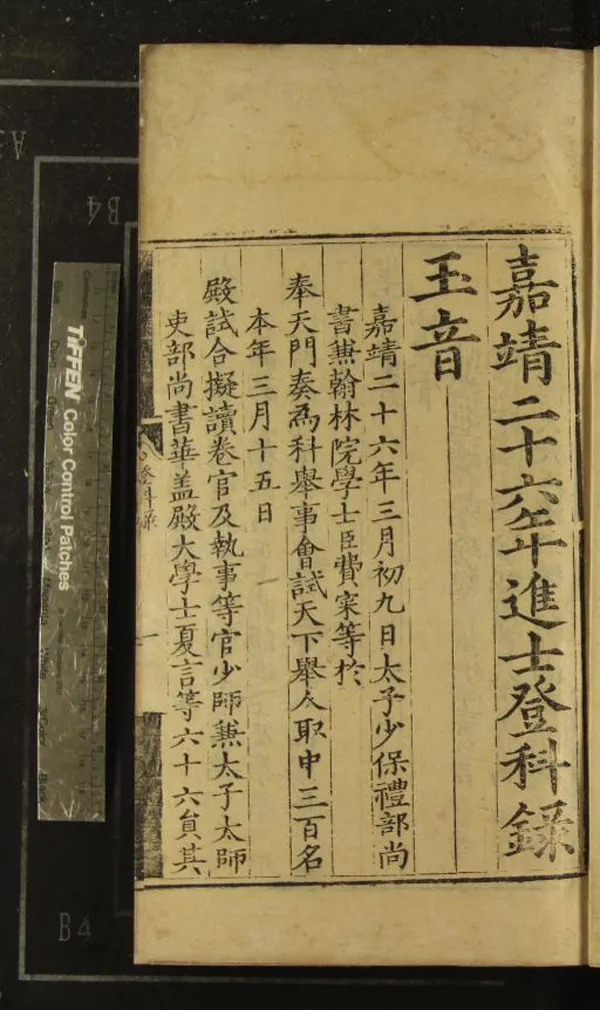 嘉靖二十六年進士登科錄
玉音
嘉靖二十六年三月初九日太子少保禮部尚
書兼翰林院學士臣費寀等於
奉天門奏為科舉事會試天下舉人取中三百名
本年三月十五日
殿試合擬讀卷官及執事等官少師兼太子太師
吏部尚書華盖殿大學士夏言等六十六員其
登科錄
一
TIFFEN Color Control Patches
B4
B4
A3